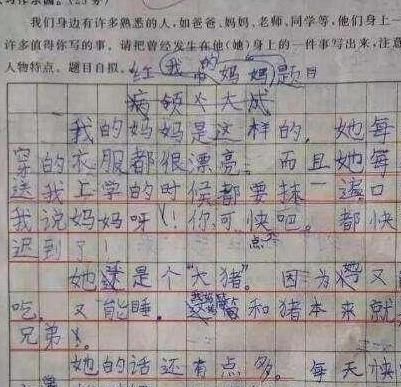 我们身边有许多熟悉的人，如爸爸、妈妈、老师、同学等，他们身上一
许多值得你写的事。请把曾经发生在他（她）身上的一件事写出来，注意
人物特点。题目自拟。
我的妈妈 题目
我的妈妈是这样的，她每
穿的衣服都很漂亮。而且她每
送我上学的时候都要抹一遍口
我说妈妈呀！你可快点吧。都快
迟到了！
她还是个“大猪”。因为又
吃。又能睡。和猪本来就
兄弟。
她的话还有点多。每天快